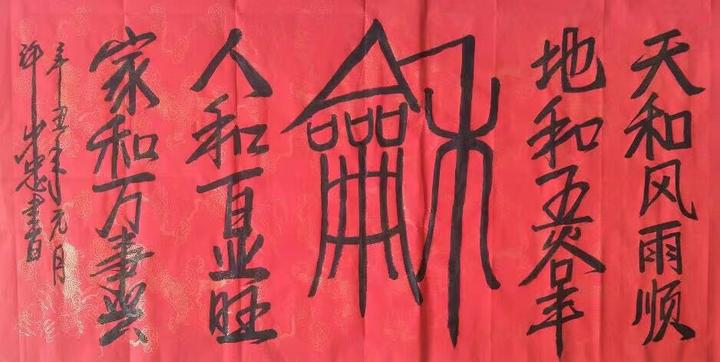 天和风雨顺
地和五谷丰
龢
人和百业旺
家和万事兴
辛丑年元月
许忠书